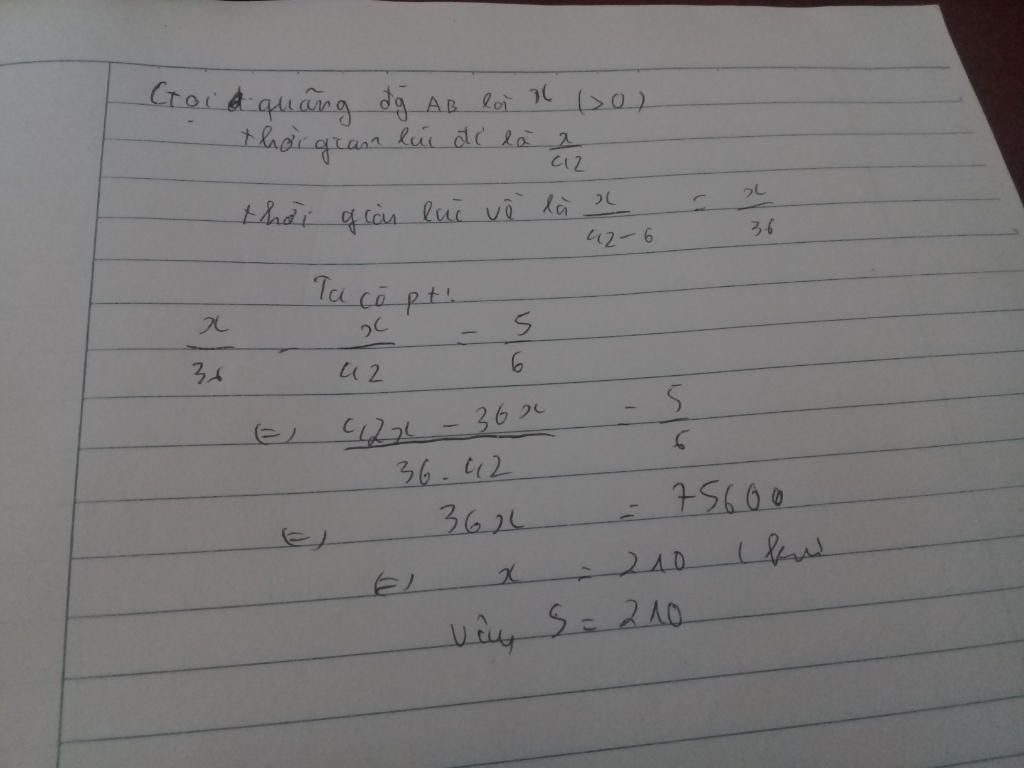 Gọi quãng đg AB là x (>0)
thời gian lúc đi là x/42
thời gian lúc về là x/42-6 = x/36
Ta có pt:
x/36 - x/42 = 5/6
(=) 42x - 36x/36.42 = 5/6
(=) 36x = 75600
(=) x = 210 (km)
Vậy S = 210